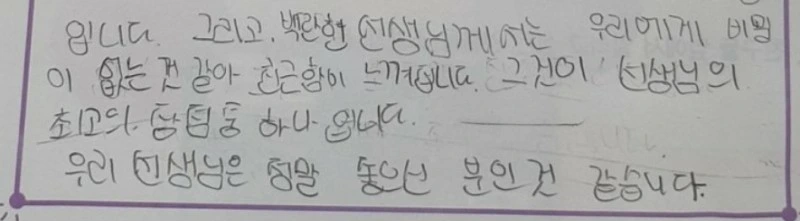 입니다. 그리고, 백란현 선생님께서는 우리에게 비밀
이 없는 것 같아 친근함이 느껴집니다. 그건이 선생님의
최고의 장점 중 하나 입니다.
우리 선생님은 정말 좋으신 분인 것 같습니다.